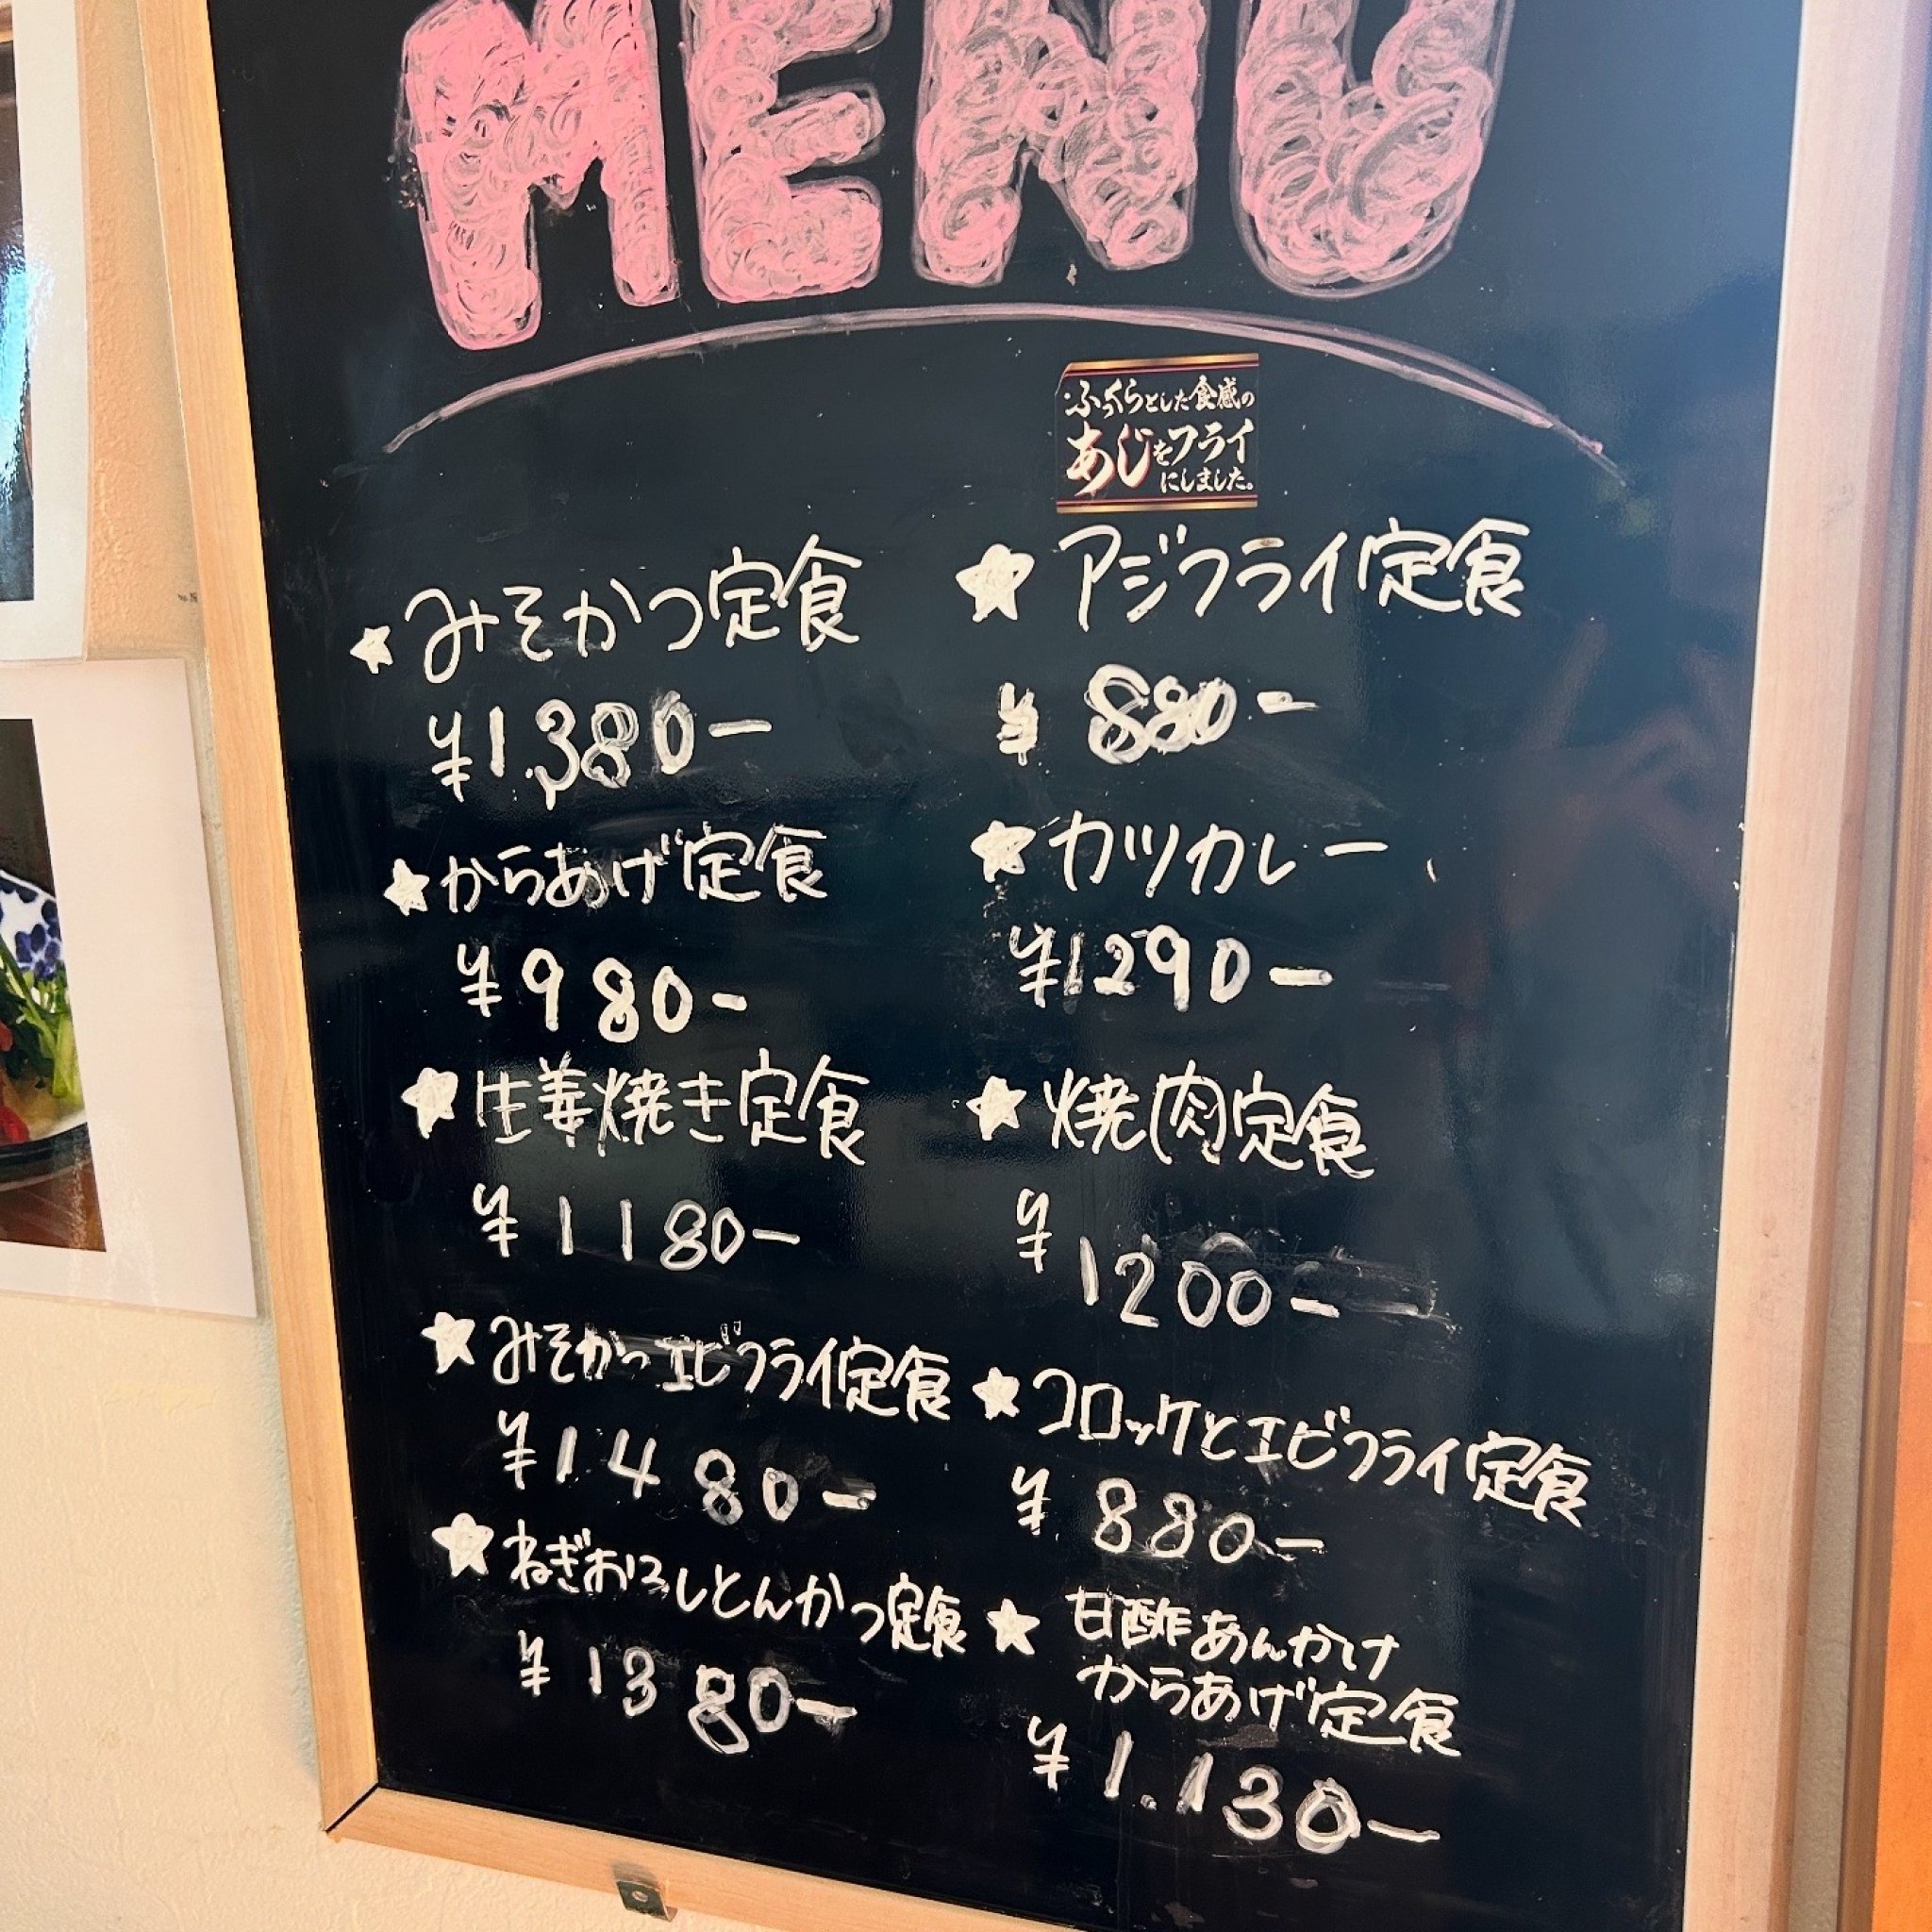 MENU
ふっくらとした食感の
あじをフライ
にしました。
★みそかつ定食
¥1,380-
★からあげ定食
¥980-
★生姜焼き定食
¥1180-
★みそかつエビフライ定食
¥1480-
★ねぎおろしとんかつ定食
¥1380-
★アジフライ定食
¥880-
★カツカレー
¥1290-
★焼肉定食
¥1200-
★コロッケとエビフライ定食
¥880-
★甘酢あんかけ
からあげ定食
¥1.130-